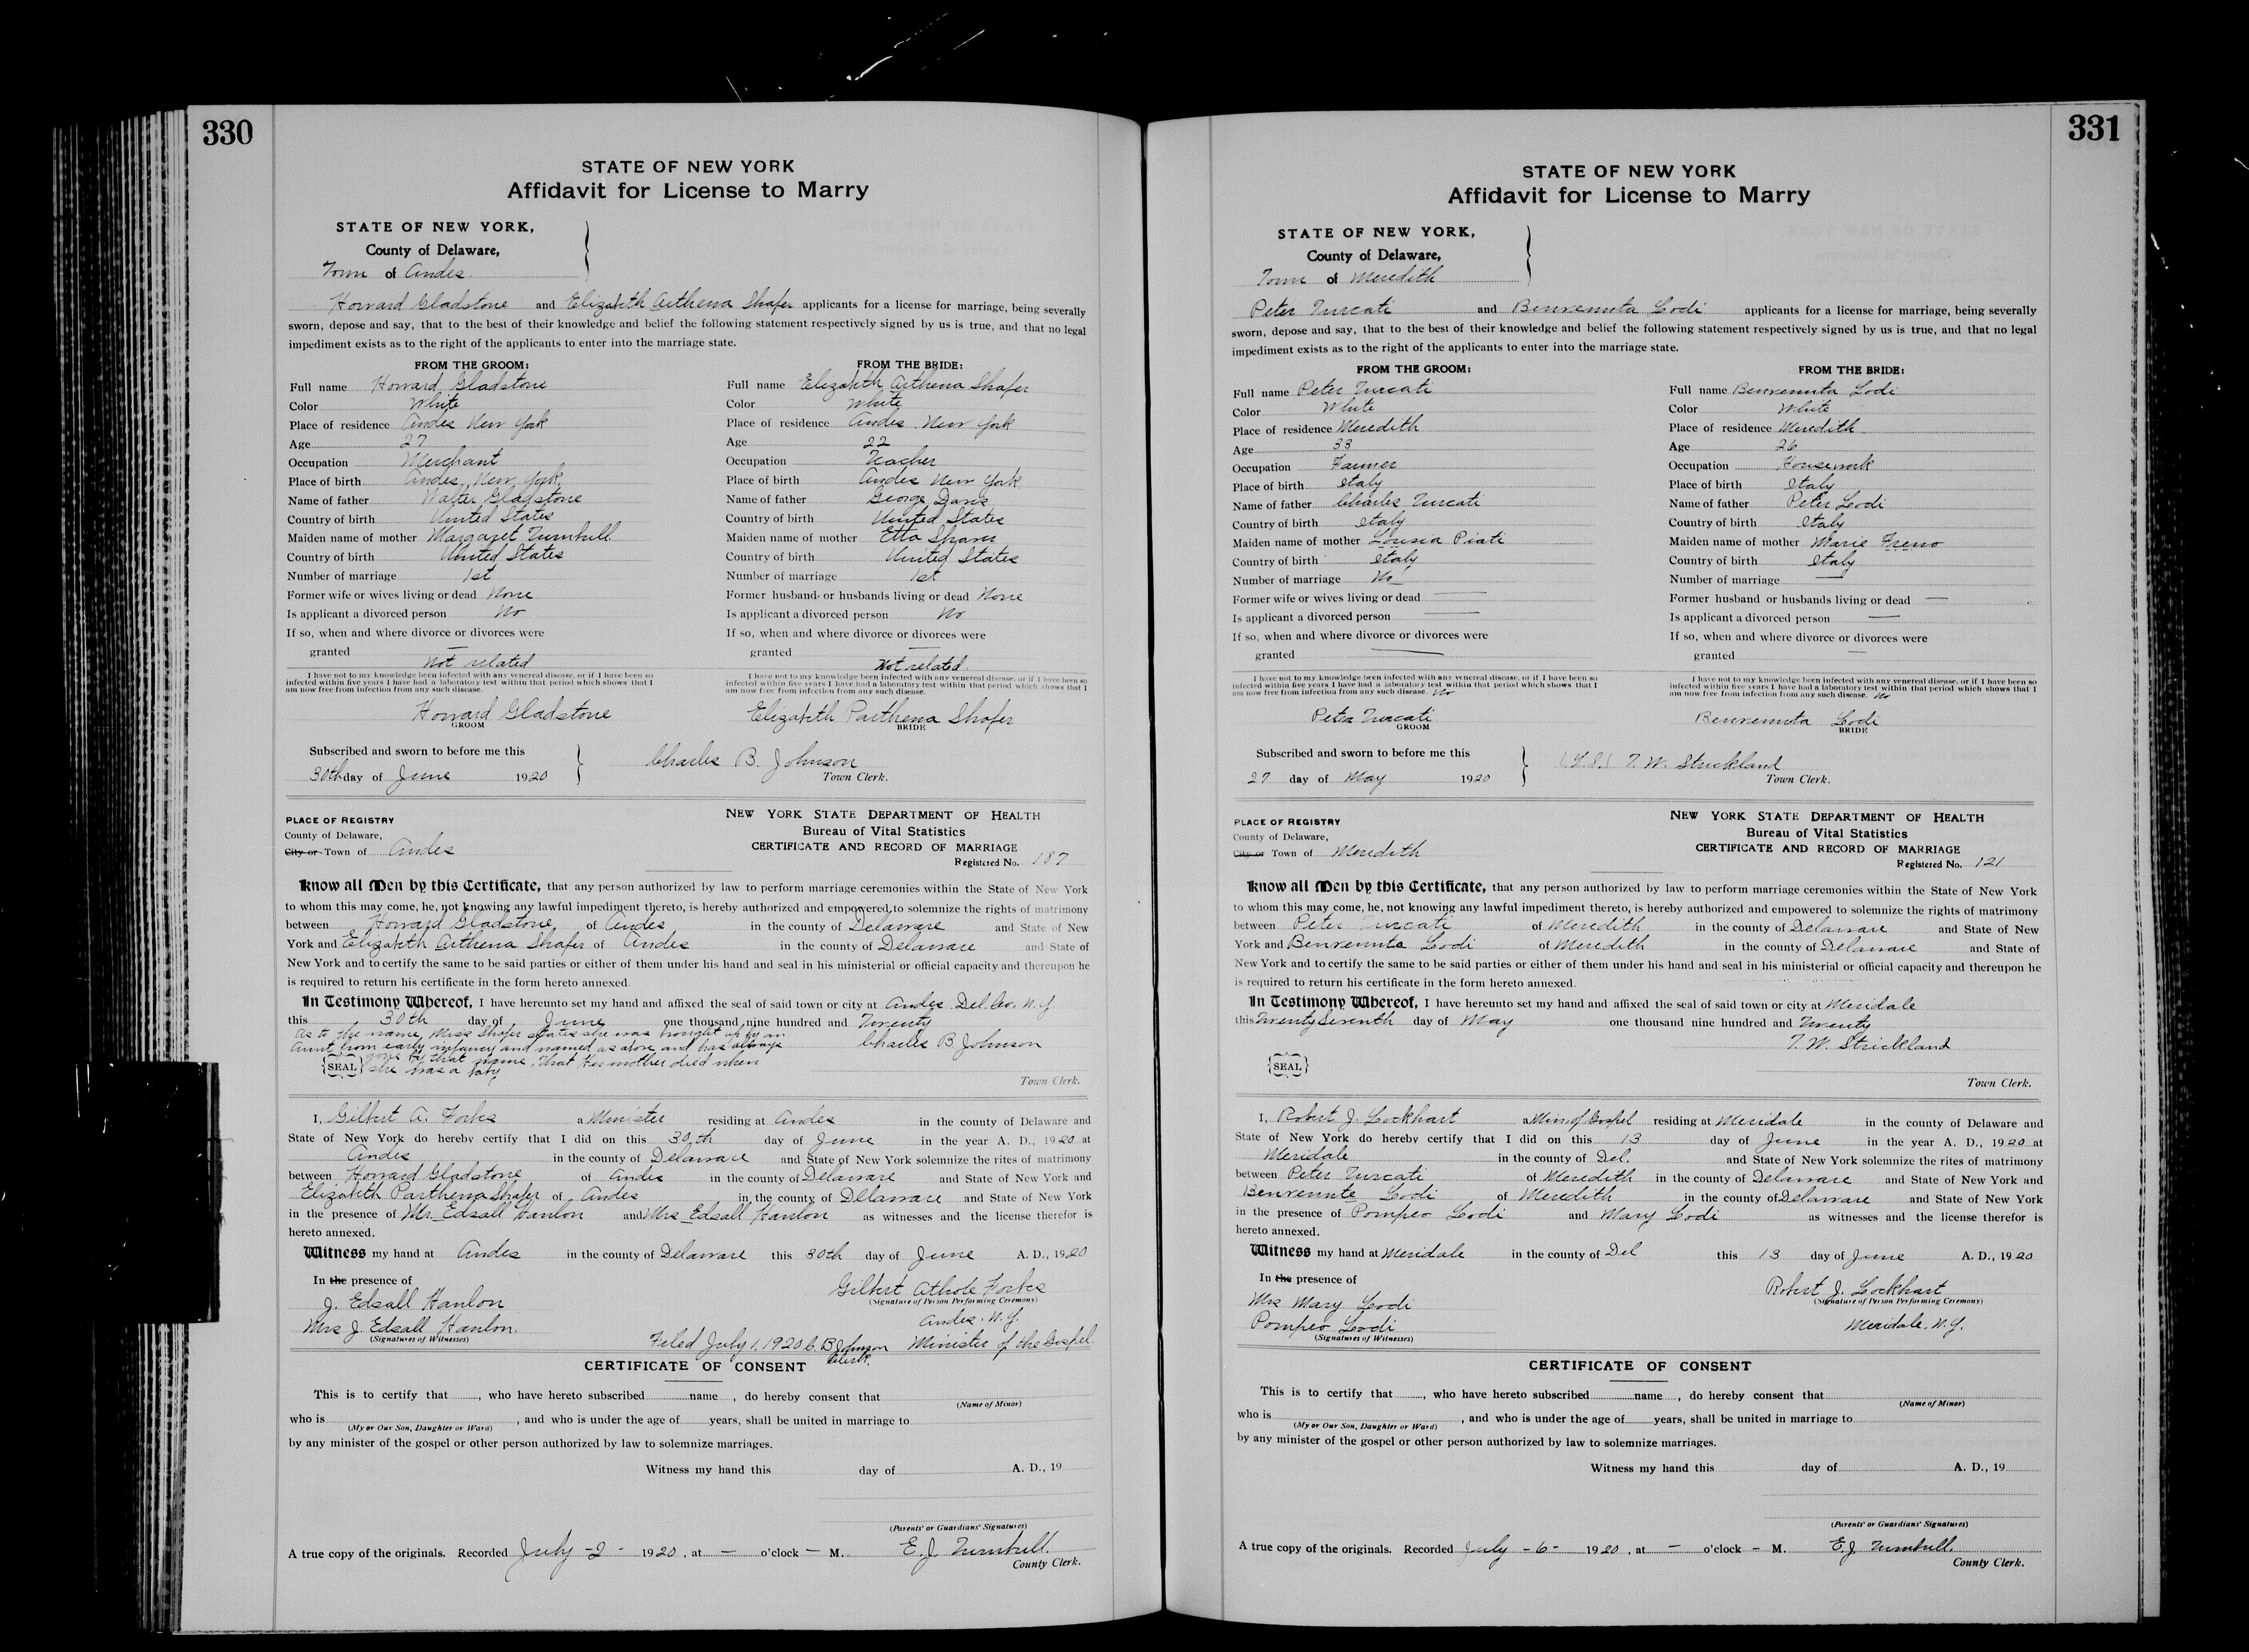 330
STATE OF NEW YORK
Affidavit for License to Marry
STATE OF NEW YORK,
County of Delaware,
Town of Andes
Howard Gladstone and Elizabeth Arthena Shafer applicants for a license for marriage, being severally
sworn, depose and say, that to the best of their knowledge and belief the following statement respectively signed by us is true, and that no legal
impediment exists as to the right of the applicants to enter into the marriage state.
FROM THE GROOM:
Full name Howard Gladstone
Color White
Place of residence Andes New York
Age 27
Occupation Merchant
Place of birth Andes, New York
Name of father Walter Gladstone
Country of birth United States
Maiden name of mother Margaret Turnbull
Country of birth United States
Number of marriage 1st
Former wife or wives living or dead None
Is applicant a divorced person No
If so, when and where divorce or divorces were
granted —
Not related
I have not to my knowledge been infected with any venereal disease, or if I have been so
infected within five years I have had a laboratory test within that period which shows that I
am now free from infection from any such disease.
Howard Gladstone
GROOM
FROM THE BRIDE:
Full name Elizabeth Arthena Shafer
Color White
Place of residence Andes New York
Age 22
Occupation Teacher
Place of birth Andes New York
Name of father George Davis
Country of birth United States
Maiden name of mother Etta Shaver
Country of birth United States
Number of marriage 1st
Former husband or husbands living or dead None
Is applicant a divorced person No
If so, when and where divorce or divorces were
granted —
Not related.
I have not to my knowledge been infected with any venereal disease, or if I have been so
infected within five years I have had a laboratory test within that period which shows that I
am now free from infection from any such disease.
Elizabeth Parthena Shafer
BRIDE
Subscribed and sworn to before me this
30th day of June 1920
Charles B. Johnson
Town Clerk.
PLACE OF REGISTRY
County of Delaware,
City or Town of Andes
NEW YORK STATE DEPARTMENT OF HEALTH
Bureau of Vital Statistics
CERTIFICATE AND RECORD OF MARRIAGE
Registered No. 187
Know all Men by this Certificate, that any person authorized by law to perform marriage ceremonies within the State of New York
to whom this may come, he, not knowing any lawful impediment thereto, is hereby authorized and empowered to solemnize the rights of matrimony
between Howard Gladstone of Andes in the county of Delaware and State of New
York and Elizabeth Arthena Shafer of Andes in the county of Delaware and State of
New York and to certify the same to be said parties or either of them under his hand and seal in his ministerial or official capacity and thereupon he
is required to return his certificate in the form hereto annexed.
In Testimony Whereof, I have hereunto set my hand and affixed the seal of said town or city at Andes Del Co. N.Y.
this 30th day of June one thousand nine hundred and Twenty
As to the name, Miss Shafer states she was brought up by an
Aunt from early infancy and named as above and has always
gone by that name, that her mother died when
she was a baby
Charles B Johnson
SEAL
Town Clerk.
I, Gilbert A. Forbes a Minister residing at Andes in the county of Delaware and
State of New York do hereby certify that I did on this 30th day of June in the year A. D., 1920 at
Andes in the county of Delaware and State of New York solemnize the rites of matrimony
between Howard Gladstone of Andes in the county of Delaware and State of New York and
Elizabeth Parthena Shafer of Andes in the county of Delaware and State of New York
in the presence of Mr. Edsall Hanlon and Mrs Edsall Hanlon as witnesses and the license therefor is
hereto annexed.
Witness my hand at Andes in the county of Delaware this 30th day of June A. D., 1920
In the presence of
J. Edsall Hanlon
Mrs J. Edsall Hanlon.
(Signatures of Witnesses)
Gilbert Athole Forbes
(Signature of Person Performing Ceremony)
Andes. N.Y.
Filed July 1, 1920 C. B Johnson Minister of the Gospel
Clerk.
CERTIFICATE OF CONSENT
This is to certify that , who have hereto subscribed name , do hereby consent that
(Name of Minor)
who is , and who is under the age of years, shall be united in marriage to
(My or Our Son, Daughter or Ward)
by any minister of the gospel or other person authorized by law to solemnize marriages.
Witness my hand this day of A. D., 19
(Parents' or Guardians' Signatures)
A true copy of the originals. Recorded July - 2 - 1920, at — o'clock — M. E. J. Turnbull.
County Clerk.
331
STATE OF NEW YORK
Affidavit for License to Marry
STATE OF NEW YORK,
County of Delaware,
Town of Meredith
Peter Turcati and Benvenuta Lodi applicants for a license for marriage, being severally
sworn, depose and say, that to the best of their knowledge and belief the following statement respectively signed by us is true, and that no legal
impediment exists as to the right of the applicants to enter into the marriage state.
FROM THE GROOM:
Full name Peter Turcati
Color White
Place of residence Meredith
Age 33
Occupation Farmer
Place of birth Italy
Name of father Charles Turcati
Country of birth Italy
Maiden name of mother Lousia Piati
Country of birth Italy
Number of marriage No
Former wife or wives living or dead —
Is applicant a divorced person —
If so, when and where divorce or divorces were
granted —
I have not to my knowledge been infected with any venereal disease, or if I have been so
infected within five years I have had a laboratory test within that period which shows that I
am now free from infection from any such disease. No
Peter Turcati
GROOM
FROM THE BRIDE:
Full name Benvenuta Lodi
Color White
Place of residence Meredith
Age 26
Occupation Housework
Place of birth Italy
Name of father Peter Lodi
Country of birth Italy
Maiden name of mother Marie Freno
Country of birth Italy
Number of marriage —
Former husband or husbands living or dead —
Is applicant a divorced person —
If so, when and where divorce or divorces were
granted —
I have not to my knowledge been infected with any venereal disease, or if I have been so
infected within five years I have had a laboratory test within that period which shows that I
am now free from infection from any such disease. No
Benvenuta Lodi
BRIDE
Subscribed and sworn to before me this
27 day of May 1920
(L.S.) T. W. Strickland
Town Clerk.
PLACE OF REGISTRY
County of Delaware,
City or Town of Meredith
NEW YORK STATE DEPARTMENT OF HEALTH
Bureau of Vital Statistics
CERTIFICATE AND RECORD OF MARRIAGE
Registered No. 121
Know all Men by this Certificate, that any person authorized by law to perform marriage ceremonies within the State of New York
to whom this may come, he, not knowing any lawful impediment thereto, is hereby authorized and empowered to solemnize the rights of matrimony
between Peter Turcati of Meredith in the county of Delaware and State of New
York and Benvenuta Lodi of Meredith in the county of Delaware and State of
New York and to certify the same to be said parties or either of them under his hand and seal in his ministerial or official capacity and thereupon he
is required to return his certificate in the form hereto annexed.
In Testimony Whereof, I have hereunto set my hand and affixed the seal of said town or city at Meridale
this Twenty Seventh day of May one thousand nine hundred and Twenty
T. W. Strickland
SEAL
Town Clerk.
I, Robert J. Lockhart a Min of Gospel residing at Meridale in the county of Delaware and
State of New York do hereby certify that I did on this 13 day of June in the year A. D., 1920 at
Meridale in the county of Del. and State of New York solemnize the rites of matrimony
between Peter Turcati of Meredith in the county of Delaware and State of New York and
Benvenute Lodi of Meredith in the county of Delaware and State of New York
in the presence of Pompeo Lodi and Mary Lodi as witnesses and the license therefor is
hereto annexed.
Witness my hand at Meridale in the county of Del this 13 day of June A. D., 1920
In the presence of
Mrs Mary Lodi
Pompeo Lodi
(Signatures of Witnesses)
Robert J. Lockhart
(Signature of Person Performing Ceremony)
Meridale, N.Y.
CERTIFICATE OF CONSENT
This is to certify that , who have hereto subscribed name , do hereby consent that
(Name of Minor)
who is , and who is under the age of years, shall be united in marriage to
(My or Our Son, Daughter or Ward)
by any minister of the gospel or other person authorized by law to solemnize marriages.
Witness my hand this day of A. D., 19
(Parents' or Guardians' Signatures)
A true copy of the originals. Recorded July - 6 - 1920, at — o'clock — M. E. J. Turnbull.
County Clerk.